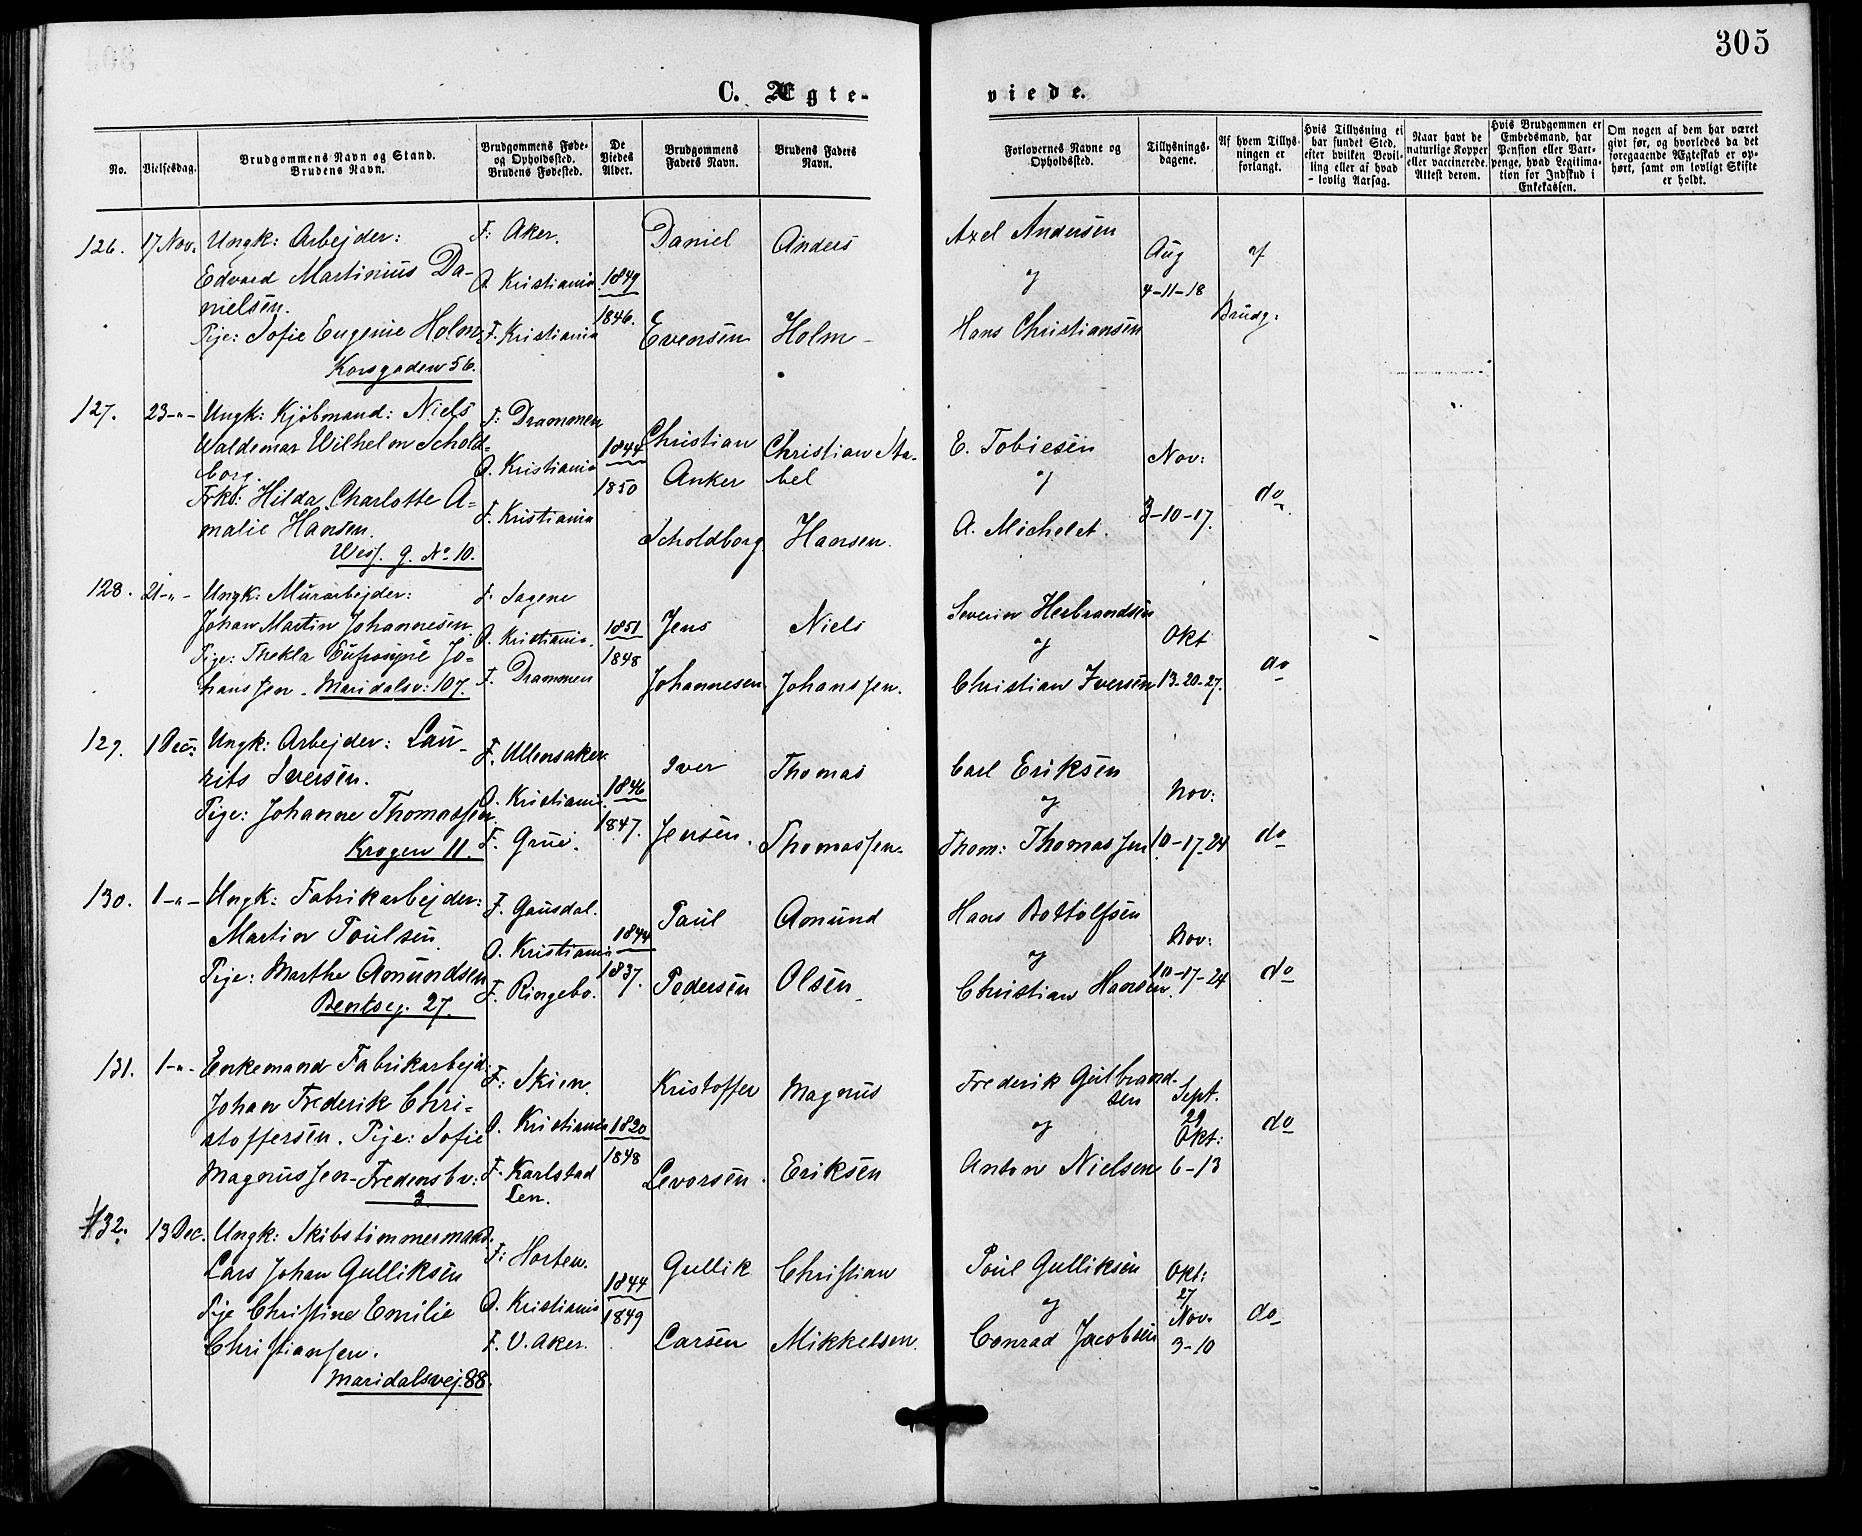 305
C. Ægte-
viede.
No.
Vielsesdag.
Brudgommens Navn og Stand.
Brudens Navn.
Brudgommens Føde-
og Opholdssted.
Brudens Fødested.
De
Viedes
Alder.
Brudgommens
Faders Navn.
Brudens Faders
Navn.
Forlovernes Navne og
Opholdssted.
Tillysnings-
dagene.
Af hvem Tillys-
ningen er
forlangt.
Hvis Tillysning ei
har fundet Sted,
efter hvilken Bevil-
ling eller af hvad
lovlig Aarsag.
Naar havt de
naturlige Kopper
eller vaccinerede.
Attest derom.
Hvis Brudgommen er
Embedsmand, har
Pension eller Vart-
penge, hvad Legitima-
tion for Indskud i
Enkekassen.
Om nogen af dem har været
gift før, og hvorledes da det
foregaaende Ægteskab er op-
hørt, samt om lovligt Skifte
er holdt.
126.
17 Nov.
Ungk: Arbejder:
Edvard Martinius Da-
nielsen.
Pige: Sofie Eugenie Holm
Korsgaden 56.
F: Aker.
O. Kristiania
F. Kristiania
1849
1846.
Daniel
Evensen
Anders
Holm
Axel Andersen
og
Hans Christiansen
Aug
4-11-18
af
Brudg.
127.
23-"-
Ungk: Kjøbmand: Niels
Waldemar Wilhelm Schold-
borg.
Frkn: Hilda Charlotte A-
malie Hansen.
Wess. g. No 10.
F: Drammen
O. Kristiania
F. Kristiania
1844
1850
Christian
Anker
Scholdborg
Christian Sta-
bel
Hansen.
E. Tobiesen
og
A. Michelet.
Nov:
3-10-17.
do
128.
21-"-
Ungk: Murarbejder:
Johan Martin Johannesen
Pige: Thekla Eufrosyne Jo-
hanssen - Maridalsv: 107.
F: Sagene
O. Kristiania.
F. Drammen
1851
1848
Jens
Johannesen
Niels
Johanssen.
Severin Herbrandsen
og
Christian Iversen
Okt
13-20-27.
do
129.
1 Dec:
Ungk: Arbejder: Lau-
rits Iversen.
Pige: Johanne Thomassen
Krogen 11.
F. Ullensaker
O. Kristiania
F. Grue.
1846
1847.
Iver
Jensen.
Thomas
Thomassen.
Carl Eriksen
og
Thom: Thomassen
Nov:
10-17-24
do
130.
1-"-
Ungk: Fabrikarbejder:
Martin Poulsen
Pige: Marthe Amundsen
Bentseg. 27.
F. Gausdal.
O. Kristiania
F. Ringebo.
1844
1837.
Paul
Pedersen
Amund
Olsen
Hans Bottolfsen
og
Christian Hansen.
Nov:
10-17-24
do
131.
1-"-
Enkemand Fabrikarbejd:
Johan Frederik Chri-
stoffersen. Pige: Sofie
Magnussen - Fredensbv:
3.
F: Skien.
O. Kristiania
F. Karlstad
Len.
1820
1848
Kristoffer
Levorsen.
Magnus
Eriksen
Frederik Gulbrand-
sen
og
Anton Nielsen
Sept.
29
Okt:
6-13
do
132.
13 Dec.
Ungk: Skibstømmermand.
Lars Johan Gulliksen
Pige Christine Emilie
Christiansen.
Maridalsvej. 88.
F: Horten.
O. Kristiania
F. V. Aker.
1844
1849
Gullik
Larsen
Christian
Mikkelsen.
Poul Gulliksen
og
Conrad Jacobsen
Okt:
27
Nov.
3-10
do